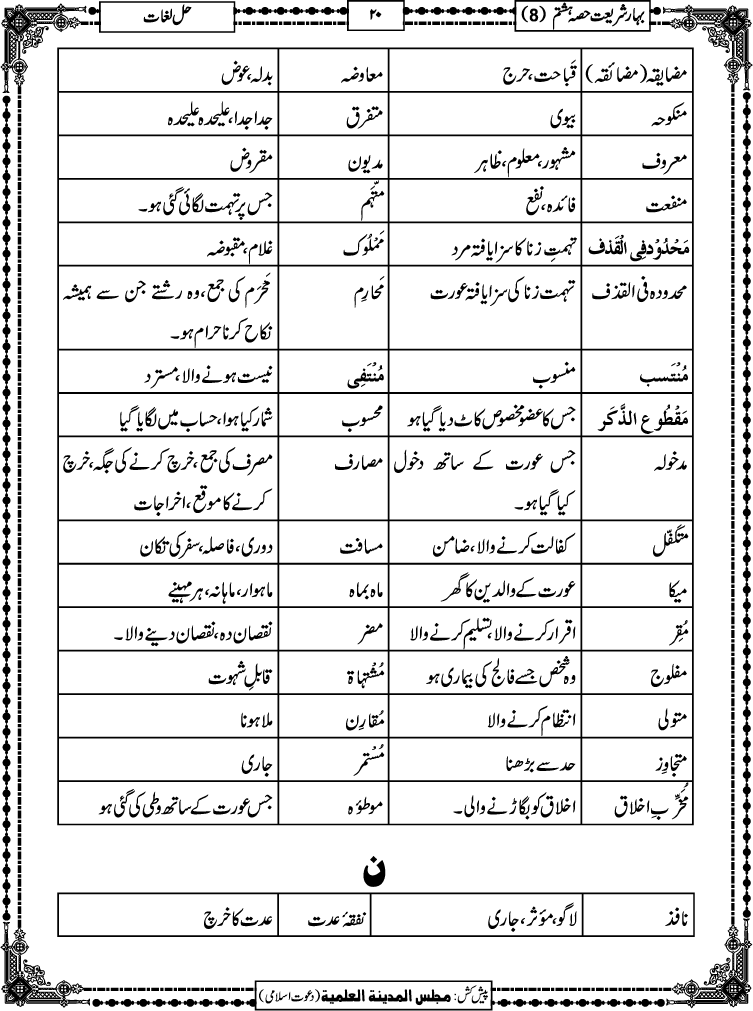 بہار شریعت حصہ ہشتم (8)
۲۰
حل لغات
مضایقہ (مضائقہ) قَباحت، حرج معاوضہ بدلہ، عوض
منکوحہ بیوی متفرق جدا جدا، علیحدہ علیحدہ
معروف مشہور، معلوم، ظاہر مدیون مقروض
منفعت فائدہ، نفع متَّہم جس پر تہمت لگائی گئی ہو۔
مَحْدُوْد فِی الْقَذف تہمتِ زنا کا سزایافتہ مرد مَمْلُوک غلام، مقبوضہ
محدودہ فی القذف تہمت زنا کی سزایافتہ عورت مَحارِم مَحْرَم کی جمع، وہ رشتے جن سے ہمیشہ
نکاح کرنا حرام ہو۔
مُنْتَسب منسوب مُنْتَفِی نیست ہونے والا، مسترد
مَقْطُوع الذَّکَر جس کا عضو مخصوص کاٹ دیا گیا ہو محسوب شمار کیا ہوا، حساب میں لگایا گیا
مدخولہ جس عورت کے ساتھ دخول مصارف مصرف کی جمع، خرچ کرنے کی جگہ، خرچ
کیا گیا ہو۔ کرنے کا موقع، اخراجات
متکَفِّل کفالت کرنے والا، ضامن مسافت دوری، فاصلہ، سفر کی تکان
میکا عورت کے والدین کا گھر ماہ بماہ ماہوار، ماہانہ، ہر مہینے
مُقِر اقرار کرنے والا، تسلیم کرنے والا مضر نقصان دہ، نقصان دینے والا۔
مفلوج وہ شخص جسے فالج کی بیماری ہو مُشْتہاۃ قابلِ شہوت
متولی انتظام کرنے والا مُقارِن ملا ہونا
متجاوِز حد سے بڑھنا مُسْتمر جاری
مُخَرِّبِ اخلاق اخلاق کو بگاڑنے والی۔ موطؤہ جس عورت کے ساتھ وطی کی گئی ہو
ن
نافذ لاگو، مؤثر، جاری نفقۂ عدت عدت کا خرچ
پیش کش: مجلس المدینة العلمیة (دعوت اسلامی)